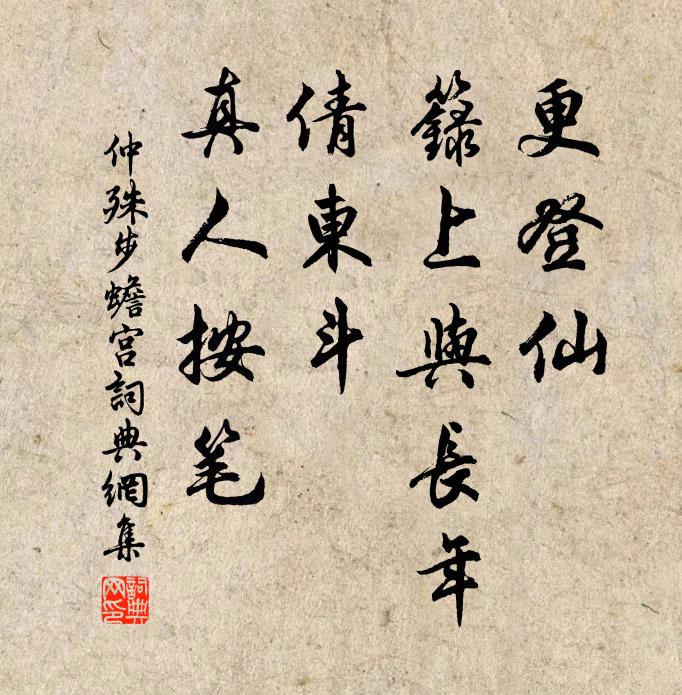 更登仙
籙上與長年
倩東斗
真人按笔
仲殊步蟾宫詞典網集
詞典網印